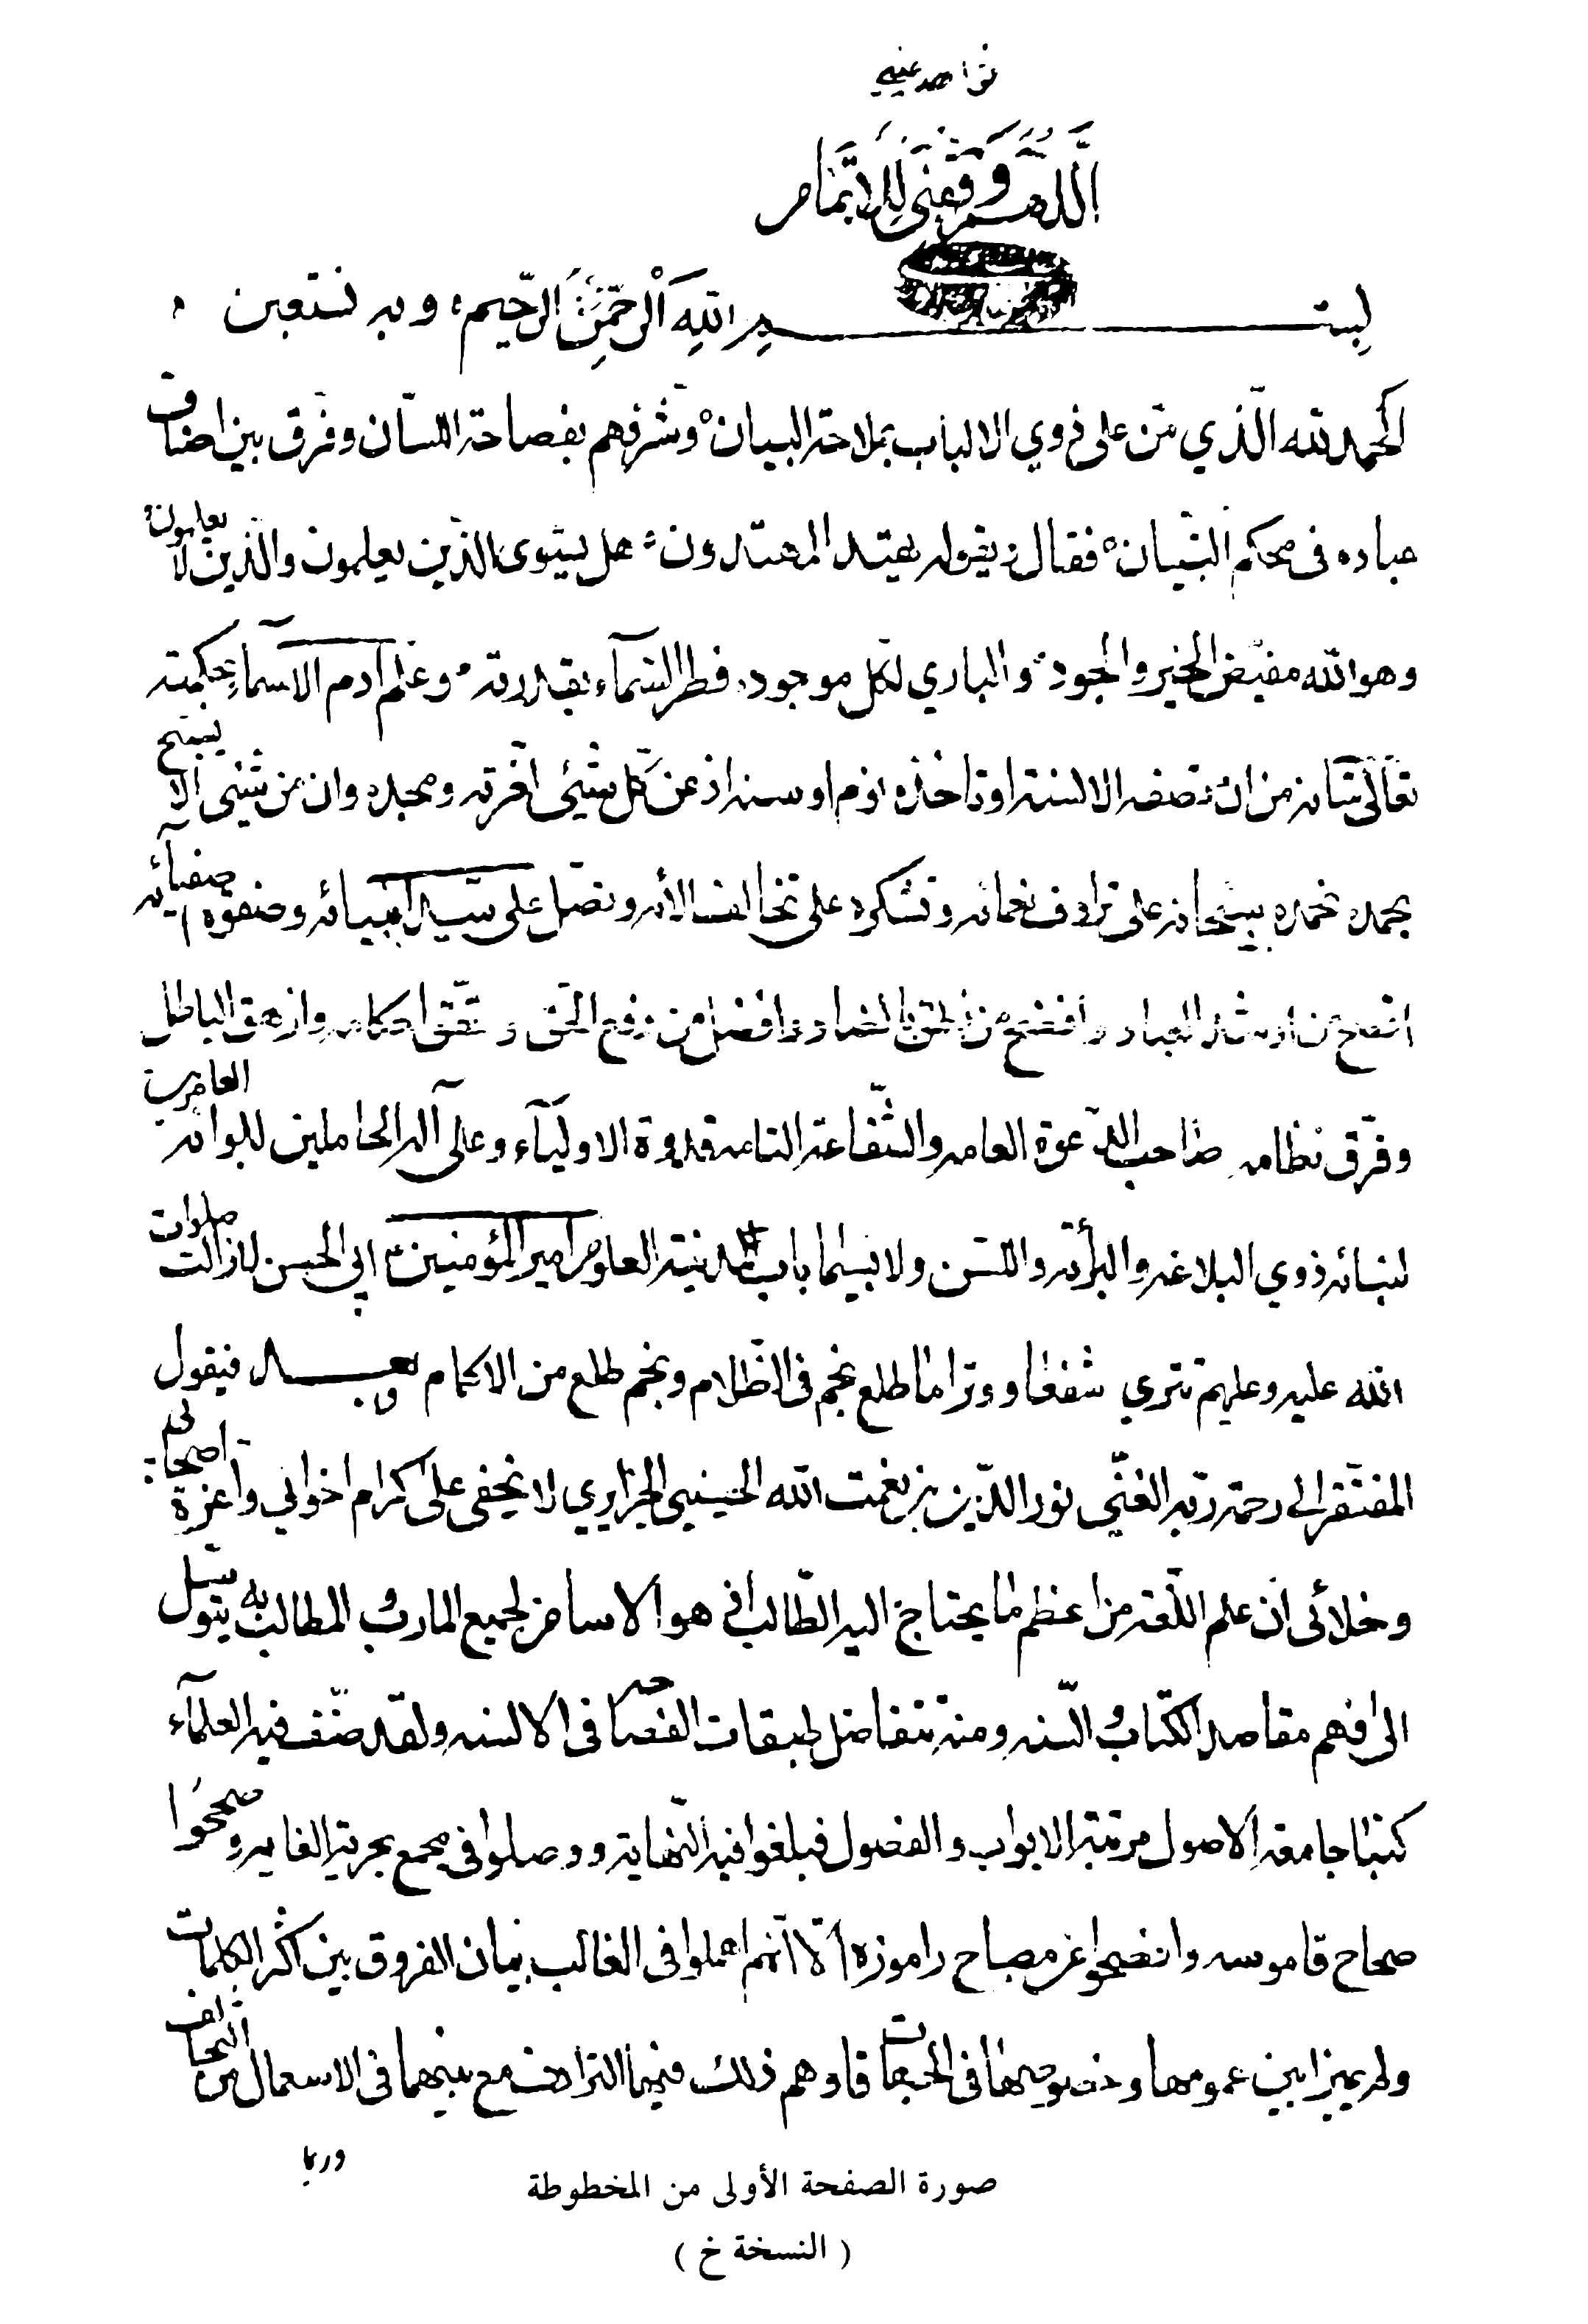 اللهم وفقني للاتمام
بسم الله الرحمن الرحيم وبه نستعين
الحمد لله الذي من على ذوي الالباب بملاحة البيان وشرفهم بفصاحة اللسان وفرق بين اصناف
عباده في محكم التبيان فقال بقوله يهتد المهتدون هل يستوى الذين يعلمون والذين لا يعلمون
وهو الله مفيض الخير والجود والباري لكل موجود فطر السماء بقدرته وعلم آدم الاسماء بحكمته
تعالى شانه من ان تصفه الالسنة او تاخذه نوم او سنه اذ عن كل شيء اقر به ومجده وان من شيء الا يسبح
بحمده نحمده سبحانه على ترادف نعمائه ونشكره على تخالف الآئه ونصل على سيد انبيائه وصفوة اصفيائه
افصح من ارشد العباد وافصح من نطق بالضاد وافضل من رفع الحق و احكامه وازهق الباطل
وفرق نظامه صاحب الدعوة العامه والشفاعة التامه قدوة الاولياء وعلى آله الحاملين للوائه
ذوي البلاغه والبرأته واللسن ولا سيما باب مدينة العلوم امير المؤمنين ابي الحسن لا زالت صلوات
الله عليه وعليهم تترى شفعا ووترا ما طلع نجم في الظلام ونجم طلع من الاكمام وبعد فيقول
المفتقر الى رحمة ربه الغني نور الدين بن نعمت الله الحسيني الجزايري لا يخفى على كرام اخواني واعزة اصحابي
وخلائي ان علم اللغه من اعظم ما يحتاج اليه الطالب اذ هو الاساس لجميع المارب و المطالب به يتوسل
الى فهم مقاصد الكتاب و السنه ومنه تتفاضل طبقات الفصحا في الالسنه ولقد صنف فيه العلماء
كتبا جامعه الاصول مرتبة الابواب والفصول فبلغوا فيه النهاية ووصلوا في مجمع بحريه الغايه وصححوا
صحاح قاموسه واتضحوا عن مصباح راموزه الا انهم اهملوا في الغالب بيان الفروق بين اكثر الكلمات
ولم يميزوا بين عمومها وخصوصها في الجهات فاوهم ذلك فيها الترادف مع بينهما في الاستعمال من التخالف
وربما
صورة الصفحة الأولى من المخطوطة
( النسخة خ )